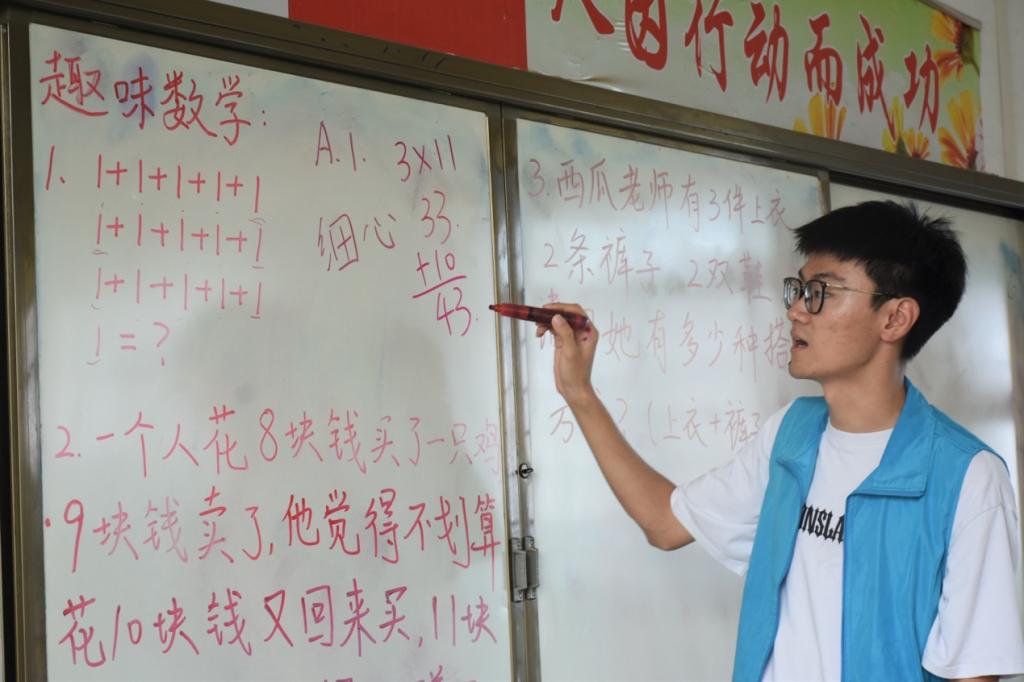 人因行动而成功
趣味数学:
1. 1+1+1+1+1
1+1+1+1+1
1+1+1+1+1
1=?
A.1. 3×11
细心 33.
+10
43.
2.一个人花8块钱买了一只鸡
.9块钱卖了,他觉得不划算
花10块钱又回来买,11块
3.西瓜老师有3件上衣
2条裤子 2双鞋
她有多少种搭
方 ?(上衣+裤子
NSLA